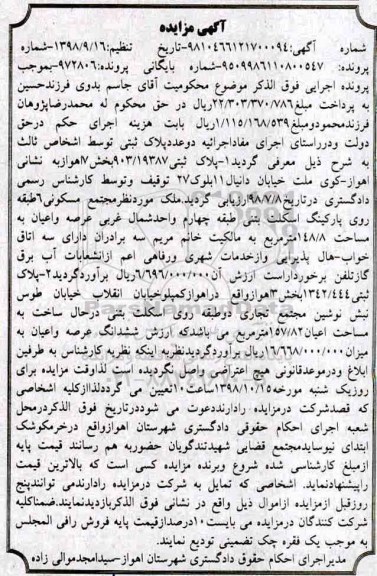 آگهی مزایده
شماره آگهی:۹۸۱۰۴۶۶۱۲۱۷۰۰۰۹۴-تاریخ تنظیم:۱۳۹۸/۹/۱۶-شماره
پرونده: ۹۵۰۹۹۸۶۱۱۰۸۰۰۵۴۷-شماره بایگانی پرونده:۹۷۲۸۰۶-بموجب
پرونده اجرایی فوق الذکر موضوع محکومیت آقای جاسم بدوی فرزندحسین
به پرداخت مبلغ۲۲/۳۰۳/۳۷۰/۷۸۶ریال در حق محکوم له محمدرضاپژوهان
فرزندمحمودومبلغ۱/۱۱۵/۱۶۸/۵۳۹ریال بابت هزینه اجرای حکم درحق
دولت ودرراستای اجرای مفاداجرائیه دوعددپلاک ثبتی توسط اشخاص ثالث
به شرح ذیل معرفی گردید۱-پلاک ثبتی۹۰۳/۱۹۳۸۷بخش۷اهوازبه نشانی
اهواز-کوی ملت خیابان دانیال۱۱بلوک۲۷ توقیف وتوسط کارشناس رسمی
دادگستری درتاریخ۹۸/۷/۸ارزیابی گردید.ملک موردنظرمجتمع مسکونی۶طبقه
روی پارکینگ اسکلت بتنی طبقه چهارم واحدشمال غربی عرصه واعیان به
مساحت ۱۴۸/۸مترمربع به مالکیت خانم مریم سه برادران دارای سه اتاق
خواب-هال پذیرایی وازخدمات شهری ورفاهی اعم ازانشعابات آب برق
گازتلفن برخورداراست ارزش آن۶/۶۹۶/۰۰۰/۰۰۰ریال برآوردگردید۲-پلاک
ثبتی۱۳۴۲/۴۴۴بخش۳اهوازواقع دراهوازکمپلوخیابان انقلاب خیابان طوس
نبش نوشین مجتمع تجاری دوطبقه روی اسکلت بتنی درحال ساخت به
مساحت اعیان۱۵۷/۸۲مترمربع می باشدکه ارزش ششدانگ عرصه واعیان به
میزان۱۶/۶۶۸/۰۰۰/۰۰۰ریال برآوردگردیدنظربه اینکه نظریه کارشناس به طرفین
ابلاغ ودرموعدقانونی هیچ اعتراضی واصل نگردیده است لذاوقت مزایده برای
روزیک شنبه مورخه۱۳۹۸/۱۰/۱۵ساعت۱۰تعیین می گرددلذاازکلیه اشخاصی
که قصدشرکت درمزایده رادارنددعوت می شوددرتاریخ فوق الذکردرمحل
شعبه اجرای احکام حقوقی دادگستری شهرستان اهوازواقع درخرمکوشک
ابتدای نیوسایدمجتمع قضایی شهیدتندگویان حضوربه هم رسانند قیمت پایه
ازمبلغ کارشناسی شده شروع وبرنده مزایده کسی است که بالاترین قیمت
راپیشنهادنماید. اشخاصی که تمایل به شرکت درمزایده رادارندمی توانندپنج
روزقبل ازمزایده ازاموال ذیل واقع در نشانی فوق الذکربازدیدنمایند.ضمناکلیه
شرکت کنندگان درمزایده می بایست۱۰درصدازقیمت پایه فروش رافی المجلس
به موجب یک فقره چک تضمینی تودیع نمایند.
مدیراجرای احکام حقوق دادگستری شهرستان اهواز-سیدامجدموالی زاده